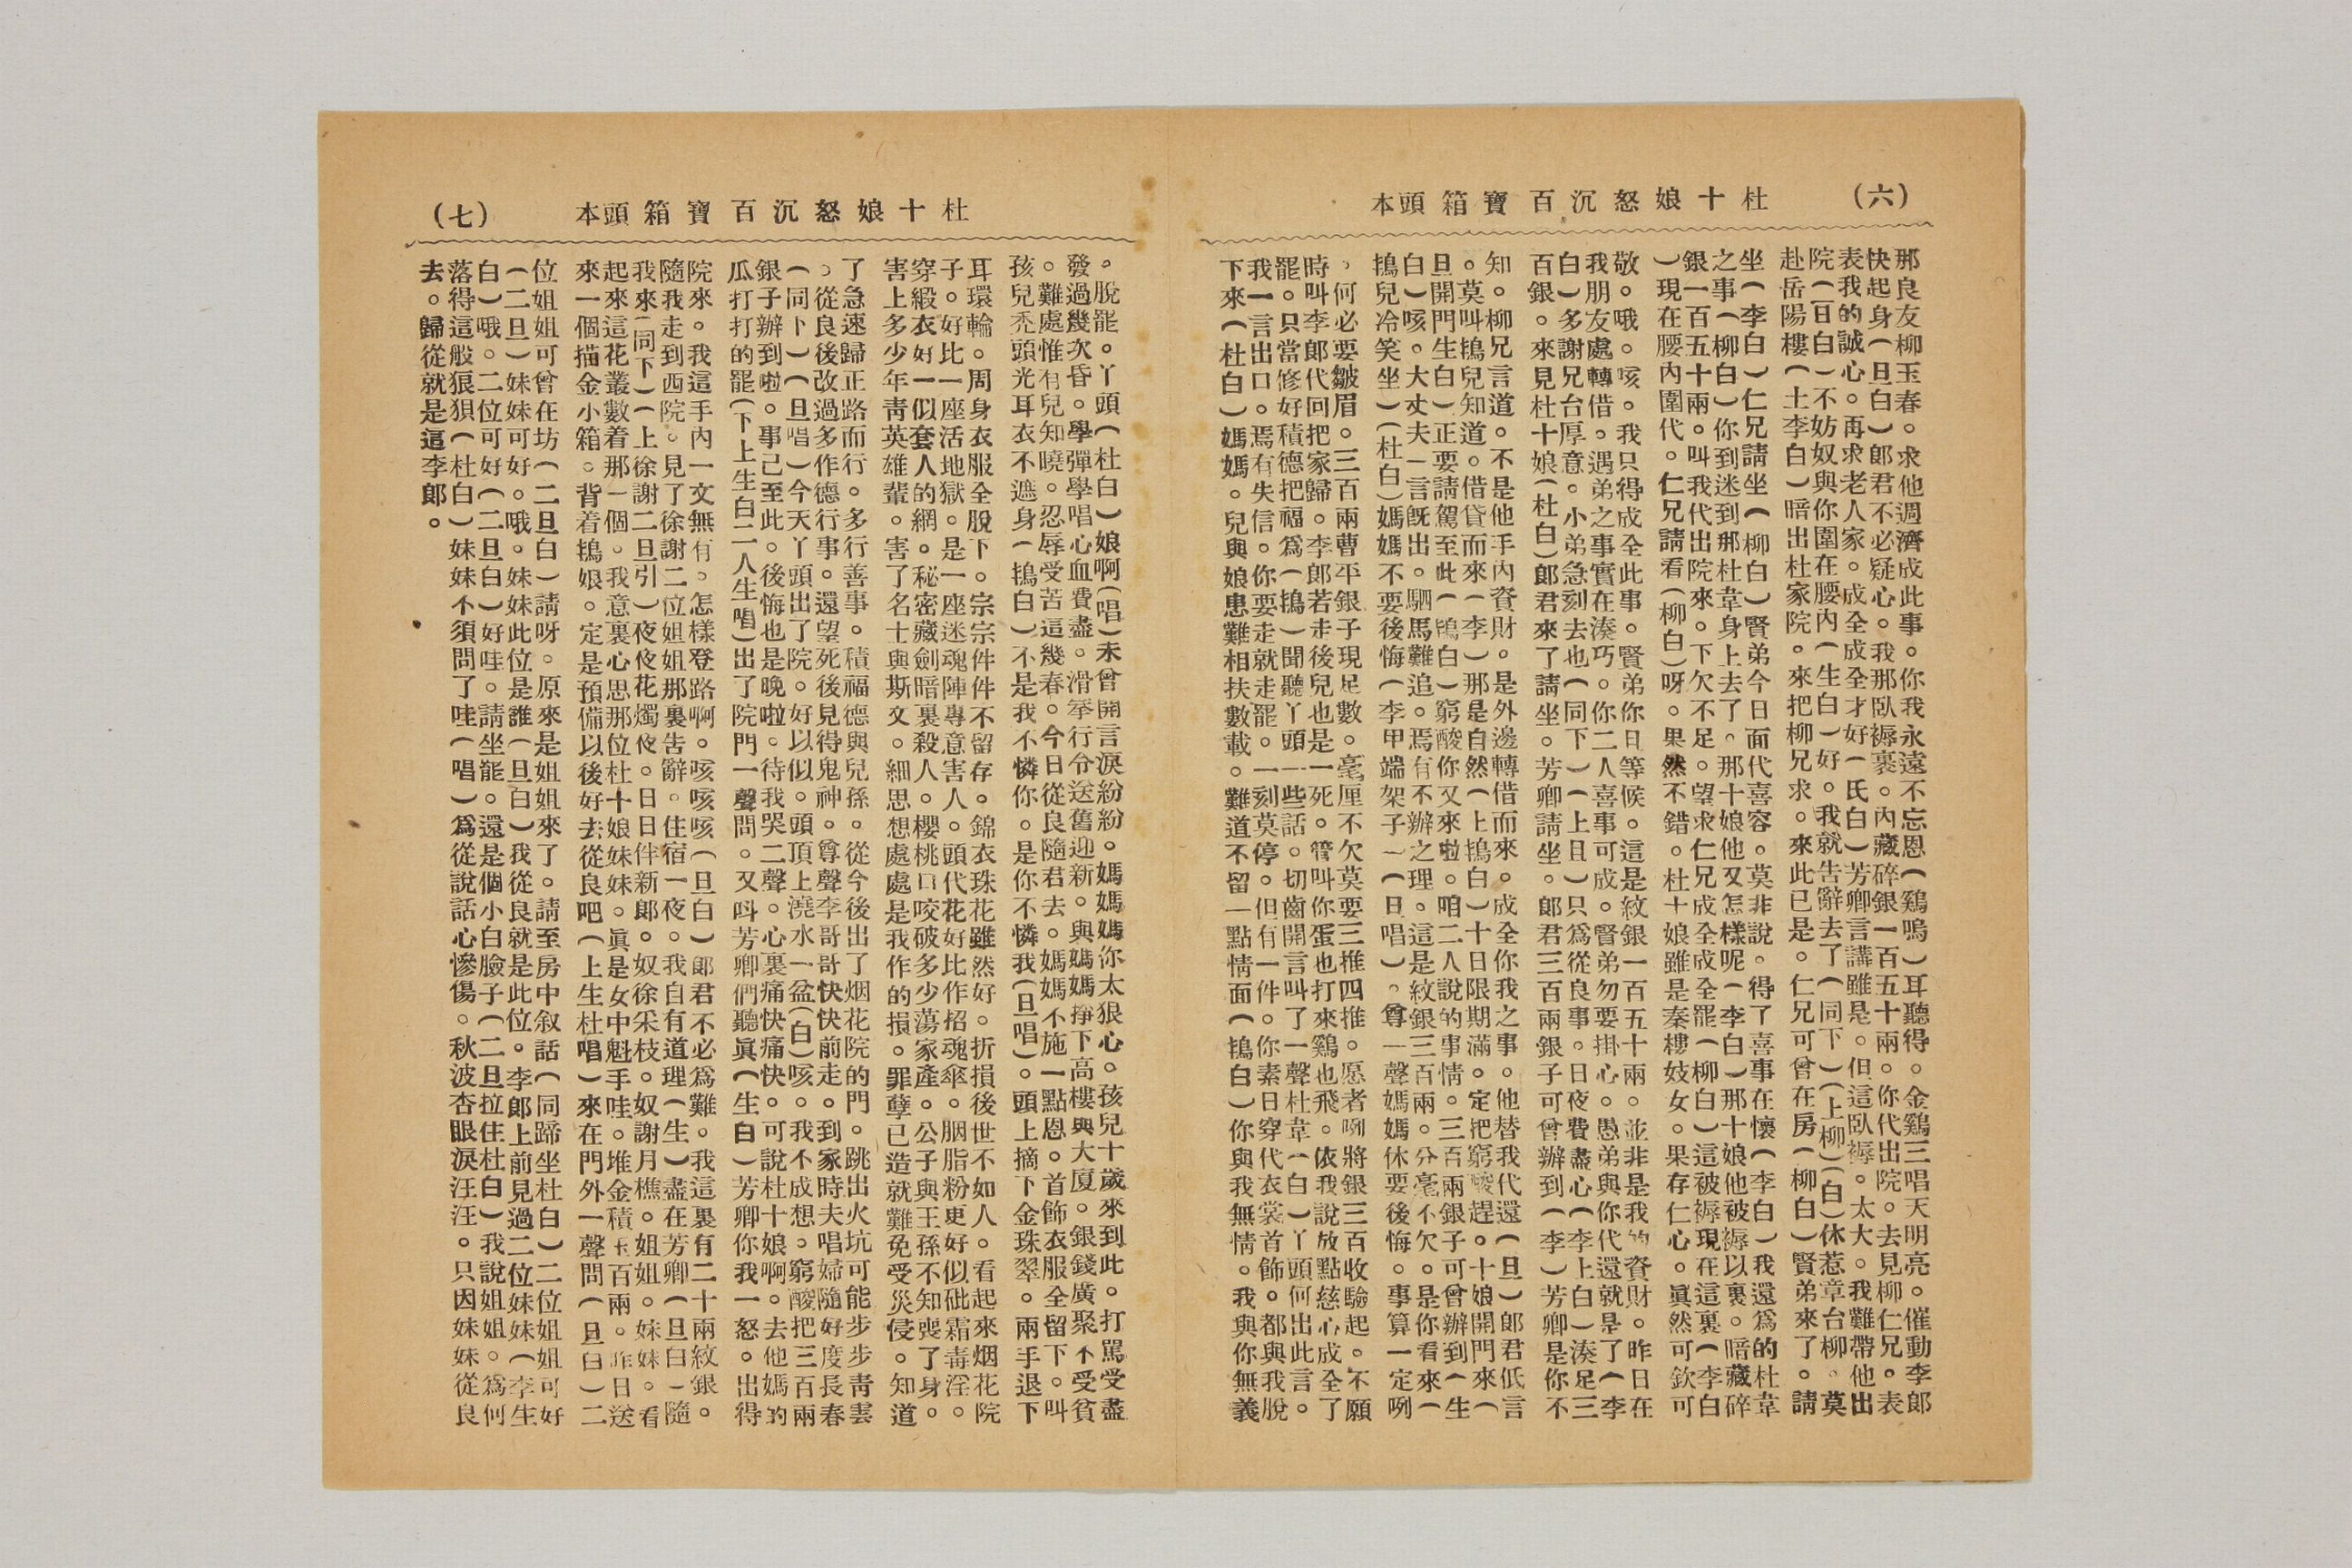 (六)
杜十娘怒沉百寶箱頭本
那良友柳玉春。求他週濟成此事。你我永遠不忘恩(鷄鳴)耳聽得。金鷄三唱天明亮。催動李郎
快起身(旦白)郎君不必疑心。我那臥褥裏。內藏碎銀一百五十兩。你代出院。去見柳仁兄。表
表我的誠心。再求老人家。成全成全才好(氏白)芳卿言講雖是。但這臥褥。太大。我難帶他出
院(旦白)不妨奴與你圍在腰內(生白)好。我就告辭去了(同下)(上柳)(白)休惹章台柳。莫
赴岳陽樓(土李白)暗出杜家院。來把柳兄求。來此已是。仁兄可曾在房(柳白)賢弟來了。請
坐(李白)仁兄請坐(柳白)賢弟今日面代喜容。莫非說。得了喜事在懷(李白)我還爲的杜韋
之事(柳白)你到迷到那杜韋身上去了。那十娘他又怎樣呢(李白)那十娘他被褥以裏。暗藏碎
銀一百五十兩。叫我代出院來。下欠不足。望求仁兄成全成全罷(柳白)這被褥現在這裏(李白
)現在腰內圍代。仁兄請看(柳白)呀。果然不錯。杜十娘雖是秦樓妓女。果存仁心。眞然可欽可
敬。哦。咳。我只得成全此事。賢弟你且等候。這是紋銀一百五十兩。並非是我的資財。昨日在
我朋友處轉借。遇弟之事實在湊巧。你二人喜事可成。賢弟勿要掛心。愚弟與你代還就是了(李
白)多謝兄台厚意。小弟急刻去也(同下)(上旦)只爲從良事。日夜費盡心(李上白)湊足三
百銀。來見杜十娘(杜白)郎君來了請坐。芳卿請坐。郎君三百兩銀子可曾辦到(李)芳卿是你不
知。柳兄言道。不是他手內資財。是外邊轉借而來。成全你我之事。他替我代還(旦)郎君低言
。莫叫搗兒知道。借貸而來(李)那是自然(上搗白)十日限期滿。定把窮酸趕。十娘開門來(
旦開門生白)正要請駕至此(搗白)窮酸你又來啦。咱二人說的事情。三百兩銀子可曾辦到(生
白)咳。大丈夫一言既出。駟馬難追。焉有不辦之理。這是紋銀三百兩。分毫不欠。是你看來(
搗兒冷笑坐)(杜白)媽媽不要後悔(李甲端架子~(日唱)。尊一聲媽媽休要後悔。事算一定咧
。何必要皺眉。三百兩曹平銀子現足數。毫厘不欠莫要三推四推。愿者咧將銀三百收驗起。不願
時叫李郎代回把家歸。李郎若走後兒也是一死。管叫你蛋也打來鷄也飛。依我說放點慈心成全了
罷。只當修好積德把福爲(搗)聞聽丫頭一些話。切齒開言叫了一聲杜韋(白)丫頭何出此言。
我一言出口。焉有失信。你要走就走罷。一刻莫停。但有一件。你素日穿代衣裳首飾。都與我脫
下來(杜白)媽媽。兒與娘患難相扶數載。難道不留一點情面(搗白)你與我無情。我與你無義
(七)
杜十娘怒沉百寶箱頭本
。脫罷。丫頭(杜白)娘啊(唱)未曾開言淚紛紛。媽媽媽你太狠心。孩兒十歲來到此。打罵受盡
發過幾次昏。學彈學唱心血費盡。滑筝行令送舊迎新。與媽媽掙下高樓興大廈。銀錢廣聚不受貧
。難處惟有兒知曉。忍辱受苦這幾春。今日從良隨君去。媽媽不施一點恩。首飾衣服全留下。叫
孩兒禿頭光耳衣不遮身(搗白)不是我不憐你。是你不憐我(旦唱)。頭上摘下金珠翠。兩手退下
耳環輪。周身衣服全脫下。宗宗件件不留存。錦衣珠花雖然好。折損後世不如人。看起來烟花院
子。好比一座活地獄。是一座迷魂陣專意害人。頭代花好比作招魂傘。胭脂粉更好似砒霜毒淫。
穿緞衣好一似套人的網。秘密藏劍暗裏殺人。櫻桃口咬破多少蕩家產。公子與王孫不知喪了身。
害上多少年靑英雄輩。害了名士與斯文。細思想處處是我作的損。罪孽已造就難免受災侵。知道
了急速歸正路而行。多行善事。積福德與兒孫。從今後出了烟花院的門。跳出火坑可能步步靑雲
。從良後改過多作德行事。還望死後見得鬼神。尊聲李哥哥快快前走。到家時夫唱婦隨好度長春
(同下)(旦唱)今天丫頭出了院。好以似。頭頂上澆水一盆(白)咳。我不成想。窮酸把三百兩
銀子辦到啦。事己至此。後悔也是晚啦。待我哭二聲。心裏痛快痛快。可說杜十娘啊。去他媽的
瓜打打的罷(下上生白二人生唱)出了院門一聲問。又叫芳卿們聽眞(生白)芳卿你我一怒。出得
院來。我這手內一文無有。怎樣登路啊。咳咳咳(旦白)郎君不必爲難。我這裏有二十兩紋銀。
隨我走到西院。見了徐謝二位姐姐那裏告辭。住宿一夜。我自有道理(生)盡在芳卿(旦白)隨
我來(同下)(上徐謝二旦引)夜夜花燭夜。日日伴新郎。奴徐采枝。奴謝月樵。姐姐。妹妹。看
起來這花叢數着那一個。我意裏心思那位杜十娘妹妹。眞是女中魁手哇。堆金積玉百兩。昨日送
來一個描金小箱。背着搗娘。定是預備以後好去從良吧(上生杜唱)來在門外一聲問(旦白)二
位姐姐可曾在坊(二旦白)請呀。原來是姐姐來了。請至房中叙話(同蹄坐杜白)二位姐姐可好
(二旦)妹妹可好。哦。妹妹此位是誰(旦白)我從良就是此位。李郎上前見過二位妹妹(李生
白)哦。二位可好(二旦白)好哇。請坐罷。還是個小白臉子(二旦拉住杜白)我說姐姐。爲何
落得這般狼狽(杜白)妹妹不須問了哇(唱)爲從說話心慘傷。秋波杏眼淚汪汪。只因妹妹從良
去。歸從就是這李郎。